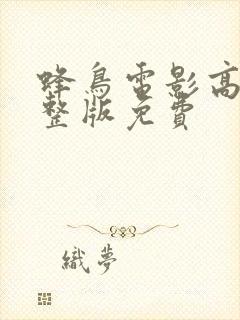 蜂鳥電影高
整版免費
織夢